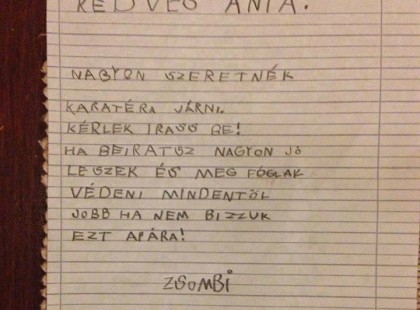 KEDVES ANYA!
NAGYON SZERETNÉK
KARATÉRA JÁRNI.
KÉRLEK IRASS BE!
HA BEIRATSZ NAGYON JÓ
LESZEK ÉS MEG FOGLAK
VÉDENI MINDENTŐL
JOBB HA NEM BIZZUK
EZT APÁRA!
ZSOMBI